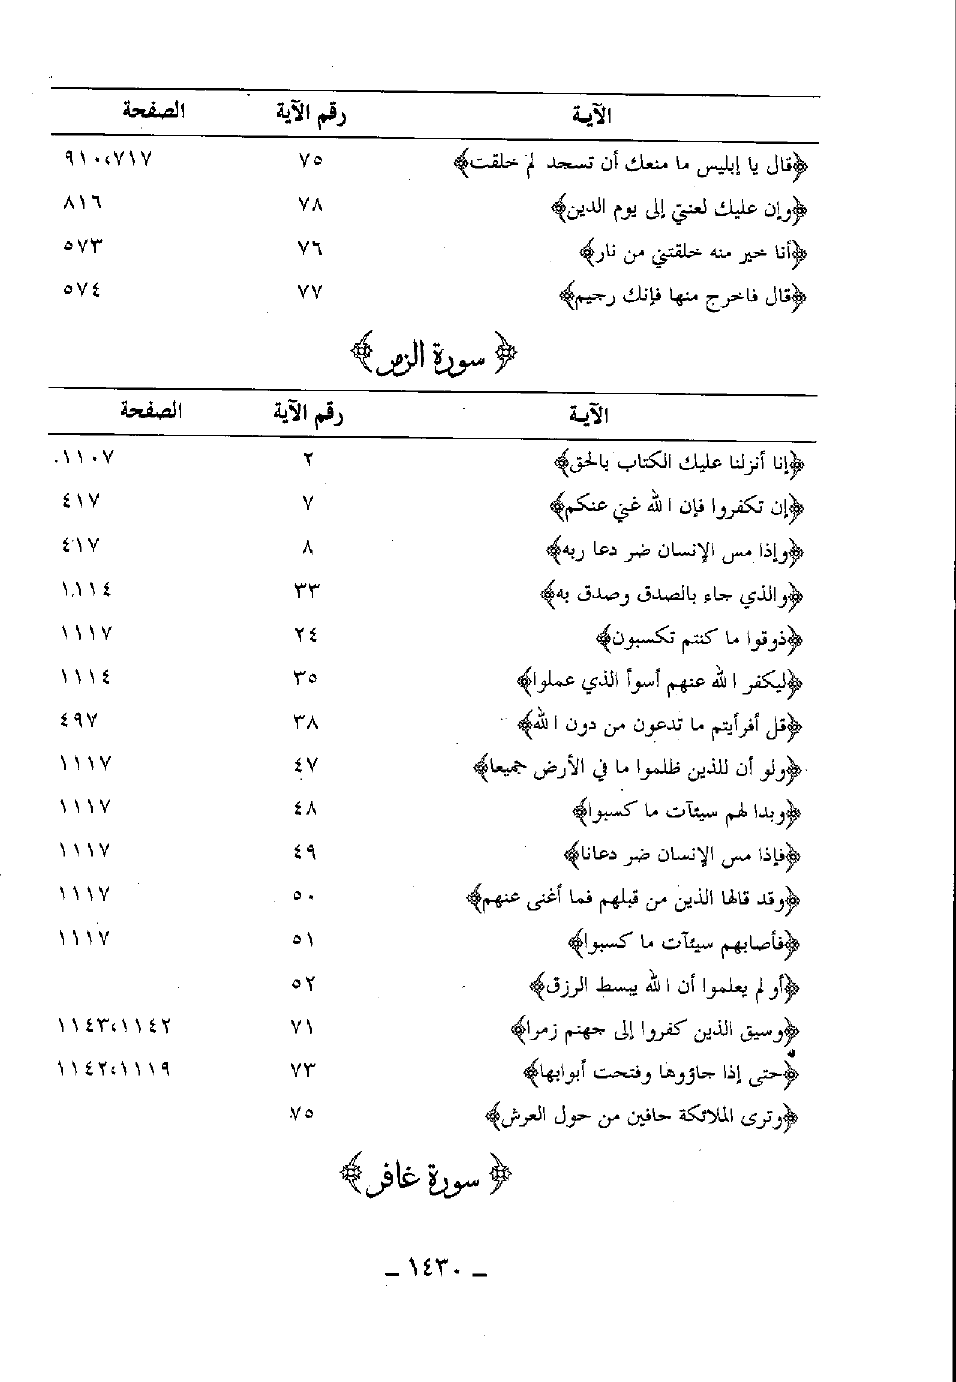 الآيـة رقم الآية الصفحة
﴿قال يا إبليس ما منعك أن تسجد لم خلقت﴾ ٧٥ ٧١٧،٩١٠
﴿وإن عليك لعنتي إلى يوم الدين﴾ ٧٨ ٨١٦
﴿أنا خير منه خلقتني من نار﴾ ٧٦ ٥٧٣
﴿قال فاخرج منها فإنك رجيم﴾ ٧٧ ٥٧٤
﴿سورة الزمر﴾
الآيـة رقم الآية الصفحة
﴿إنا أنزلنا عليك الكتاب بالحق﴾ ٢ ١١٠٧.
﴿إن تكفروا فإن الله غني عنكم﴾ ٧ ٤١٧
﴿وإذا مس الإنسان ضر دعا ربه﴾ ٨ ٤١٧
﴿والذي جاء بالصدق وصدق به﴾ ٣٣ ١١١٤
﴿ذوقوا ما كنتم تكسبون﴾ ٢٤ ١١١٧
﴿ليكفر الله عنهم أسوأ الذي عملوا﴾ ٣٥ ١١١٤
﴿قل أفرأيتم ما تدعون من دون الله﴾ ٣٨ ٤٩٧
﴿ولو أن للذين ظلموا ما في الأرض جميعا﴾ ٤٧ ١١١٧
﴿وبدا لهم سيئآت ما كسبوا﴾ ٤٨ ١١١٧
﴿فإذا مس الإنسان ضر دعانا﴾ ٤٩ ١١١٧
﴿وقد قالها الذين من قبلهم فما أغنى عنهم﴾ ٥٠ ١١١٧
﴿فأصابهم سيئآت ما كسبوا﴾ ٥١ ١١١٧
﴿أو لم يعلموا أن الله يبسط الرزق﴾ ٥٢
﴿وسيق الذين كفروا إلى جهنم زمرا﴾ ٧١ ١١٤٢،١١٤٣
﴿حتى إذا جاؤوها وفتحت أبوابها﴾ ٧٣ ١١١٩،١١٤٢
﴿وترى الملائكة حافين من حول العرش﴾ ٧٥
﴿سورة غافر﴾
ـ ١٤٣٠ ـ